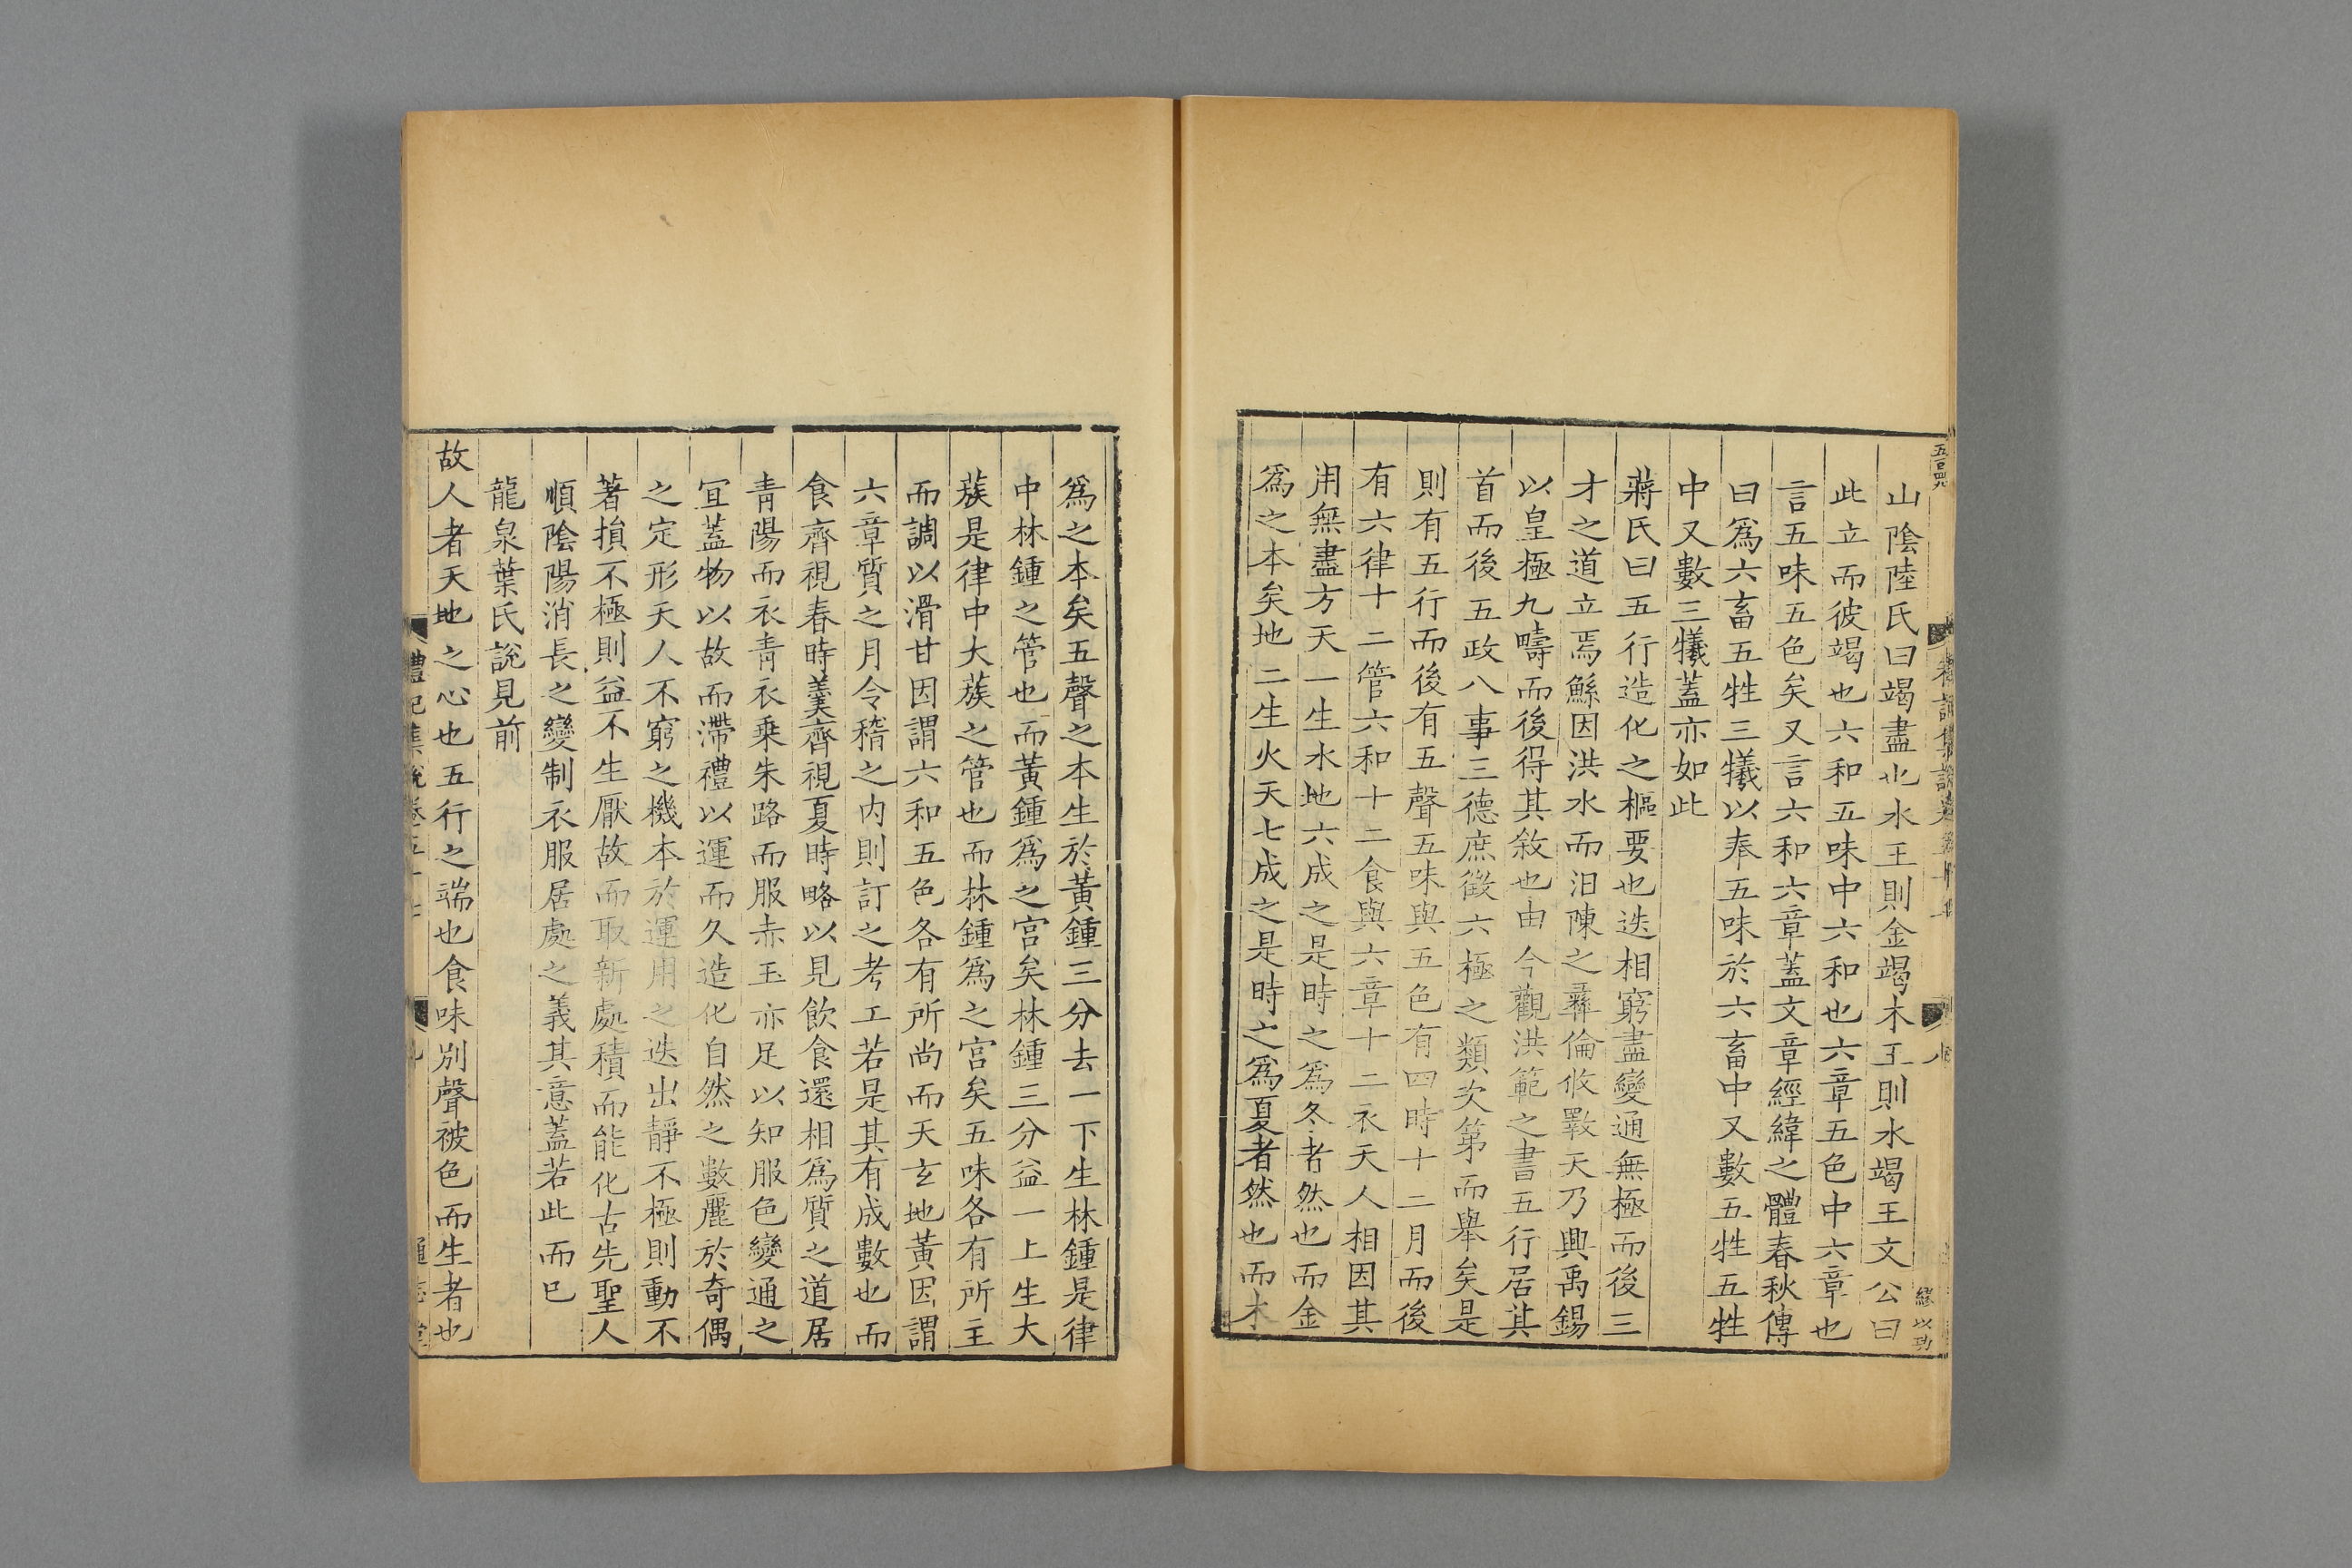 山陰陸氏曰竭盡也水王則金竭木王則水竭王文公曰
此立而彼竭也六和五味中六和也六章五色中六章也
言五味五色矣又言六和六章蓋文章經緯之體春秋傳
曰爲六畜五牲三犧以奉五味於六畜中又數五牲五牲
中又數三犧蓋亦如此
蔣氏曰五行造化之樞要也迭相窮盡變通無極而後三
才之道立焉鯀因洪水而汨陳之彝倫攸斁天乃興禹錫
以皇極九疇而後得其敘也由今觀洪範之書五行居其
首而後五政八事三德庶徵六極之類次第而舉矣是
則有五行而後有五聲五味與五色有四時十二月而後
有六律十二管六和十二食與六章十二衣天人相因其
用無盡方天一生水地六成之是時之爲冬者然也而金
爲之本矣地二生火天七成之是時之爲夏者然也而木
爲之本矣五聲之本生於黃鍾三分去一下生林鍾是律
中林鍾之管也而黃鍾爲之宮矣林鍾三分益一上生大
蔟是律中大蔟之管也而林鍾爲之宮矣五味各有所主
而調以滑甘因謂六和五色各有所尚而天玄地黃因謂
六章質之月令稽之內則訂之考工若是其有成數也而
食齊視春時羹齊視夏時略以見飲食還相爲質之道居
青陽而衣青衣乘朱路而服赤玉亦足以知服色變通之
宜蓋物以故而滯禮以運而久造化自然之數麗於奇偶
之定形天人不窮之機本於運用之迭出靜不極則動不
著損不極則益不生厭故而取新處積而能化古先聖人
順陰陽消長之變制衣服居處之義其意蓋若此而已
龍泉葉氏說見前
故人者天地之心也五行之端也食味別聲被色而生者也